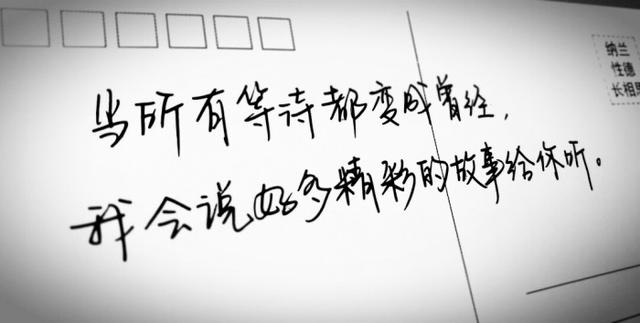 当所有等待都变成曾经，
我会说好多精彩的故事给你听。
纳兰
性德
长相思